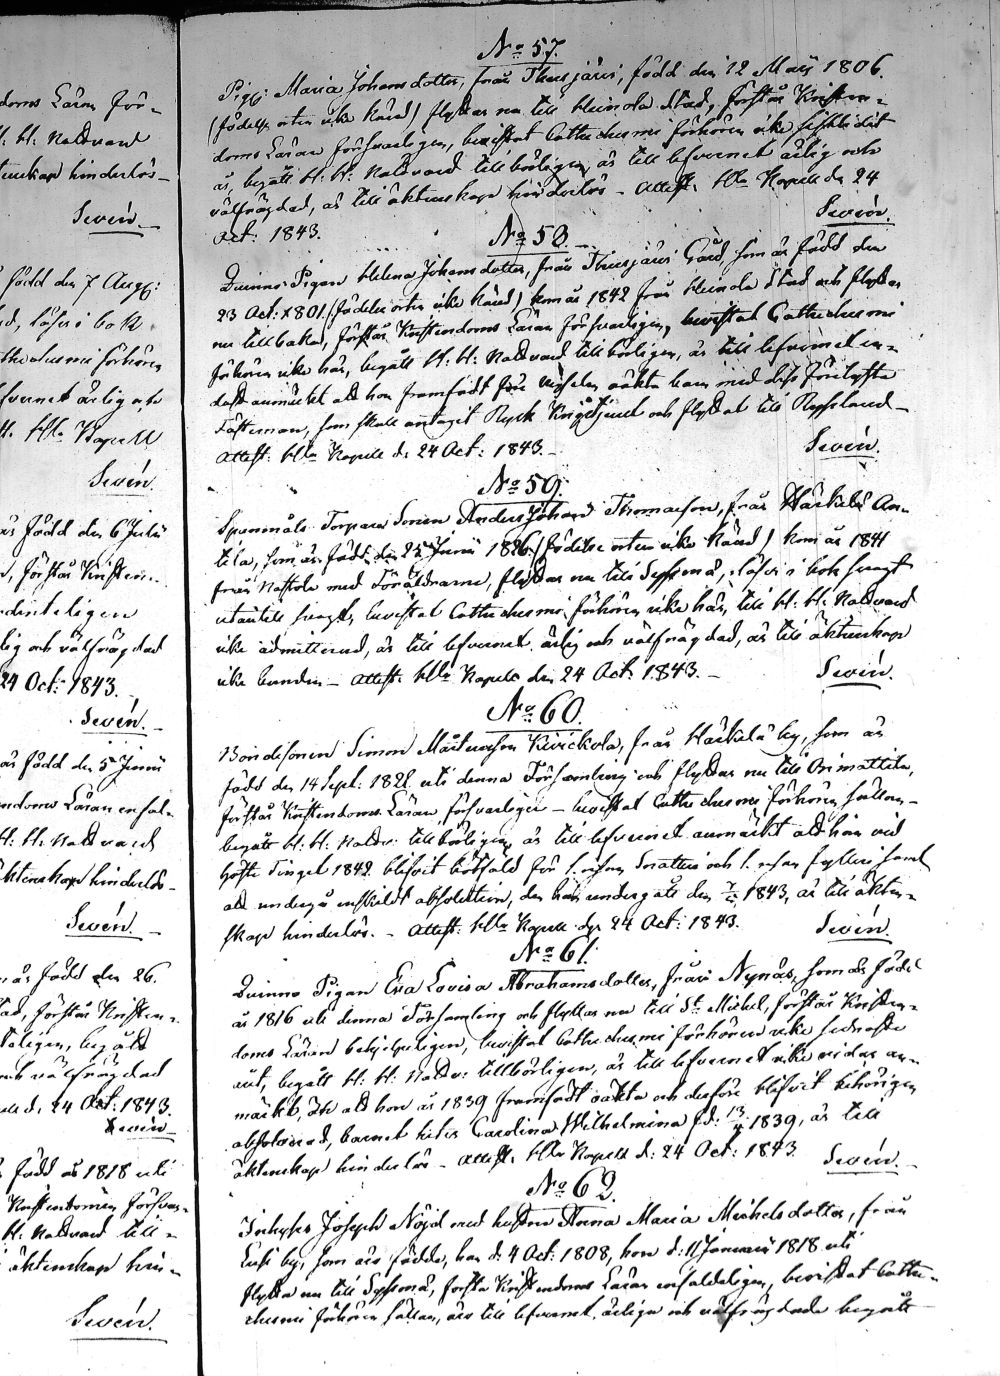 doms Läran för-
H. H. Nattvard
tenskap hinderlös -
Sevén.
född den 7 Aug:
läser i bok
thechesmi förhören
lefvernet ärlig och
H. Hlla Kapell
Sevén.
är född den 6 Julii
förstår Kristen-
lig och välfrägdad
24 Oct: 1843.
Sevén.
är född den 5 Junii
ndoms Läran enfal-
H. H. Nattvard
äktenskap hinderlös -
Sevén.
är född den 26.
förstår Kristen-
teligen, begått
och välfrägdad
d. 24 Oct: 1843.
Sevén
född år 1818 uti
Kristendomen försvar-
H. Nattvard till-
äktenskap hin-
Sevén.
No 57.
Pig: Maria Johansdotter, från Thusjärvi, född den 12 Maij 1806.
(födelse orten icke känd) flyttar nu till Heinola Stad, förstår Kristen-
doms Läran försvarligen, bevistat Cathechesmi förhören icke
år, begått H. H. Nattvard tillbörligen, är till lefvernet ärlig och
välfrägdad, är till äktenskap hinderlös - Attest. Hlla Kapell d. 24
Oct: 1843. Sevén.
No 58.
Qvinno Pigan Helena Johansdotter, från Thusjärvi Gård, som är född den
23 Oct: 1801 (födelse orten icke känd) kom år 1842 från Heinola Stad och flyttar
nu tillbaka, förstår Kristendoms Läran försvarligen, bevistat Cathechesmi
förhören icke här, begått H. H. Nattvard tillbörligen, är till lefvernet en-
dast anmärkt att hon framfödt före vigseln oäkta barn med dess förlofvade
Fästeman, som skall antagit Rysk Krigstjenst och flyttat till Ryssland -
Attest: Hlla Kapell d. 24 Oct: 1843. - Sevén.
No 59.
Spanmåls Torpare Sonen Anders Johan Thomasson, från Härkälä An-
tila, som är född den 25 Junii 1826 (födelse orten icke känd) kom år 1841
från Nastola med Föräldrarne, flyttar nu till Sysmä, läser i bok svagt
utantill svagt, bevistat Cathechesmi förhören icke här, till H. H. Nattvard
icke admitterad, är till lefvernet ärlig och välfrägdad, är till äktenskap
icke bunden - Attest. Hlla Kapell den 24 Oct: 1843. - Sevén.
No 60.
Bondesonen Simon Mårtensson Kivickola, från Härkälä by, som är
född den 14 Sept: 1821 uti denna Församling och flyttar nu till Orimattila,
förstår Kristendoms Läran försvarligen - bevistat Cathechesmi förhören sällan -
begått H. H. Nattv: tillbörligen, är till lefvernet anmärkt att han vid
Höste Tinget 1842 blifvit bötfäld för 1. resan Snatteri och 1. resan fylleri samt
att undergå enskildt absolution, den han undergått den 1843, är till äkten-
skap hinderlös. - Attest: Hlla Kapell d. 24 Oct: 1843. Sevén.
No 61.
Qvinno Pigan Eva Lovisa Abrahamsdotter, från Nynäs, som är född
år 1816 uti denna Församling och flyttar nu till St Michel, förstår Kristen-
doms Läran behjelpeligen, bevistat Cathechesmi förhören icke sednaste
året, begått H. H. Nattv: tillbörligen, är till lefvernet icke vidare an-
märkt, än att hon år 1839 framfödt oäkta och derföre blifvit behörigen
absolverad, barnet heter Carolina Wilhelmina fd: 1839, är till
äktenskap hinderlös - Attest. Hlla Kapell d: 24 Oct: 1843. Sevén. -
No 62.
Inhyses Joseph Nöjd med hustru Anna Maria Michelsdotter, från
Lusi by, som äro födde, han d. 4 Oct: 1808, hon d: 11 Januarii 1818 uti
flytta nu till Sysmä, förstå Kristendoms Läran enfaldeligen, bevistat Cathe-
chesmi förhören sällan, äro till lefvernet ärliga och välfrägdade begått